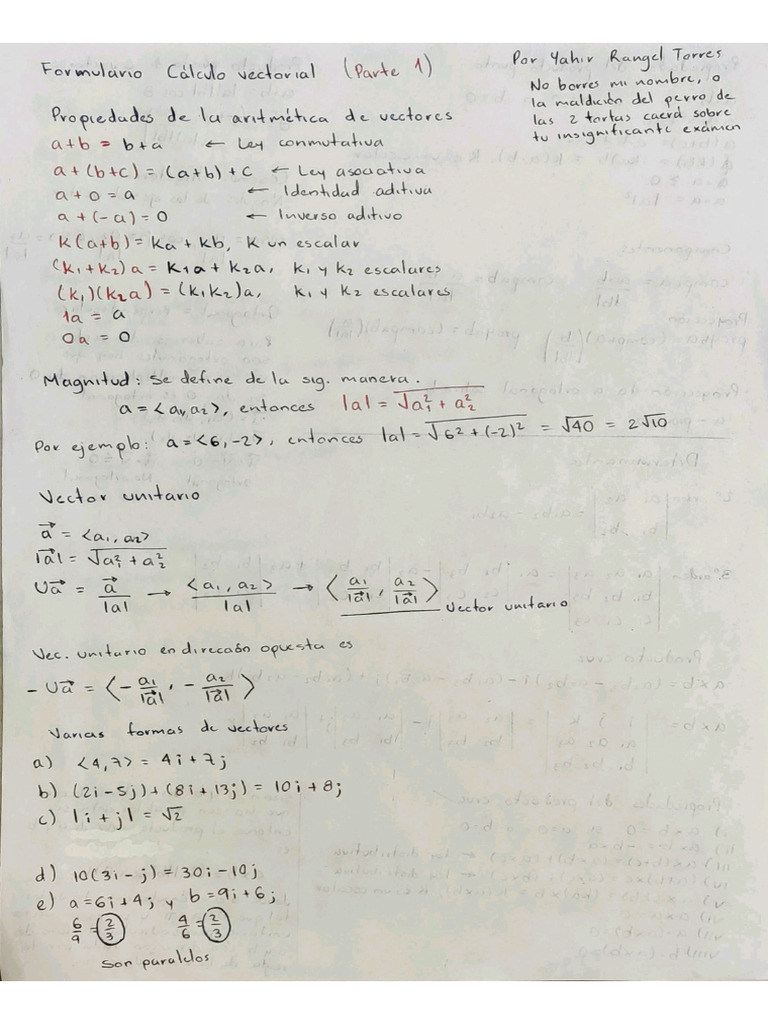 Formulario Cálculo vectorial (Parte 1)
Por Yahir Rangel Torres
No borres mi nombre, o
la maldición del perro de
las 2 tortas caerá sobre
tu insignificante exámen
Propiedades de la aritmética de vectores
a+b = b+a ← Ley conmutativa
a+(b+c)=(a+b)+c ← Ley asociativa
a+0=a ← Identidad aditiva
a+(-a)=0 ← Inverso aditivo
K(a+b)=Ka+Kb, K un escalar
(k₁+k₂)a=k₁a+k₂a, k₁ y k₂ escalares
(k₁)(k₂a)=(k₁k₂)a, k₁ y k₂ escalares
1a = a
0a = 0
Magnitud: Se define de la sig. manera.
a=<a₁,a₂>, entonces |a|=√a₁²+a₂²
Por ejemplo: a=<6,-2>, entonces |a|=√6²+(-2)² = √40 = 2√10
Vector unitario
a⃗ = <a₁, a₂>
|a⃗|= √a₁²+a₂²
Ua⃗ = a⃗/|a| → <a₁, a₂>/|a| → <a₁/|a⃗|, a₂/|a⃗|> Vector unitario
Vec. unitario en dirección opuesta es
-Ua⃗ = <-a₁/|a⃗|, -a₂/|a⃗|>
Varias formas de vectores
a) <4,7> = 4i+7j
b) (2i-5j)+(8i+13j) = 10i+8j
c) |i+j|=√2
d) 10(3i-j)=30i-10j
e) a=6i+4j y b=9i+6j
6/9=2/3 4/6=2/3
Son paralelos